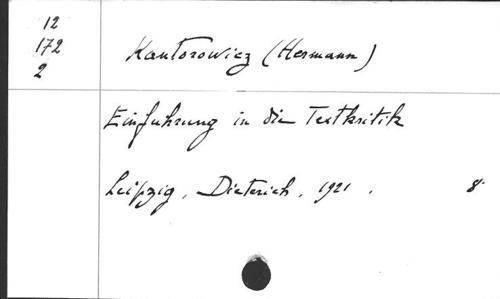 12
172
2
Kantorowicz (Hermann)
Einfuhrung in die Textkritik
Leipzig, Dieterich, 1921. 8°